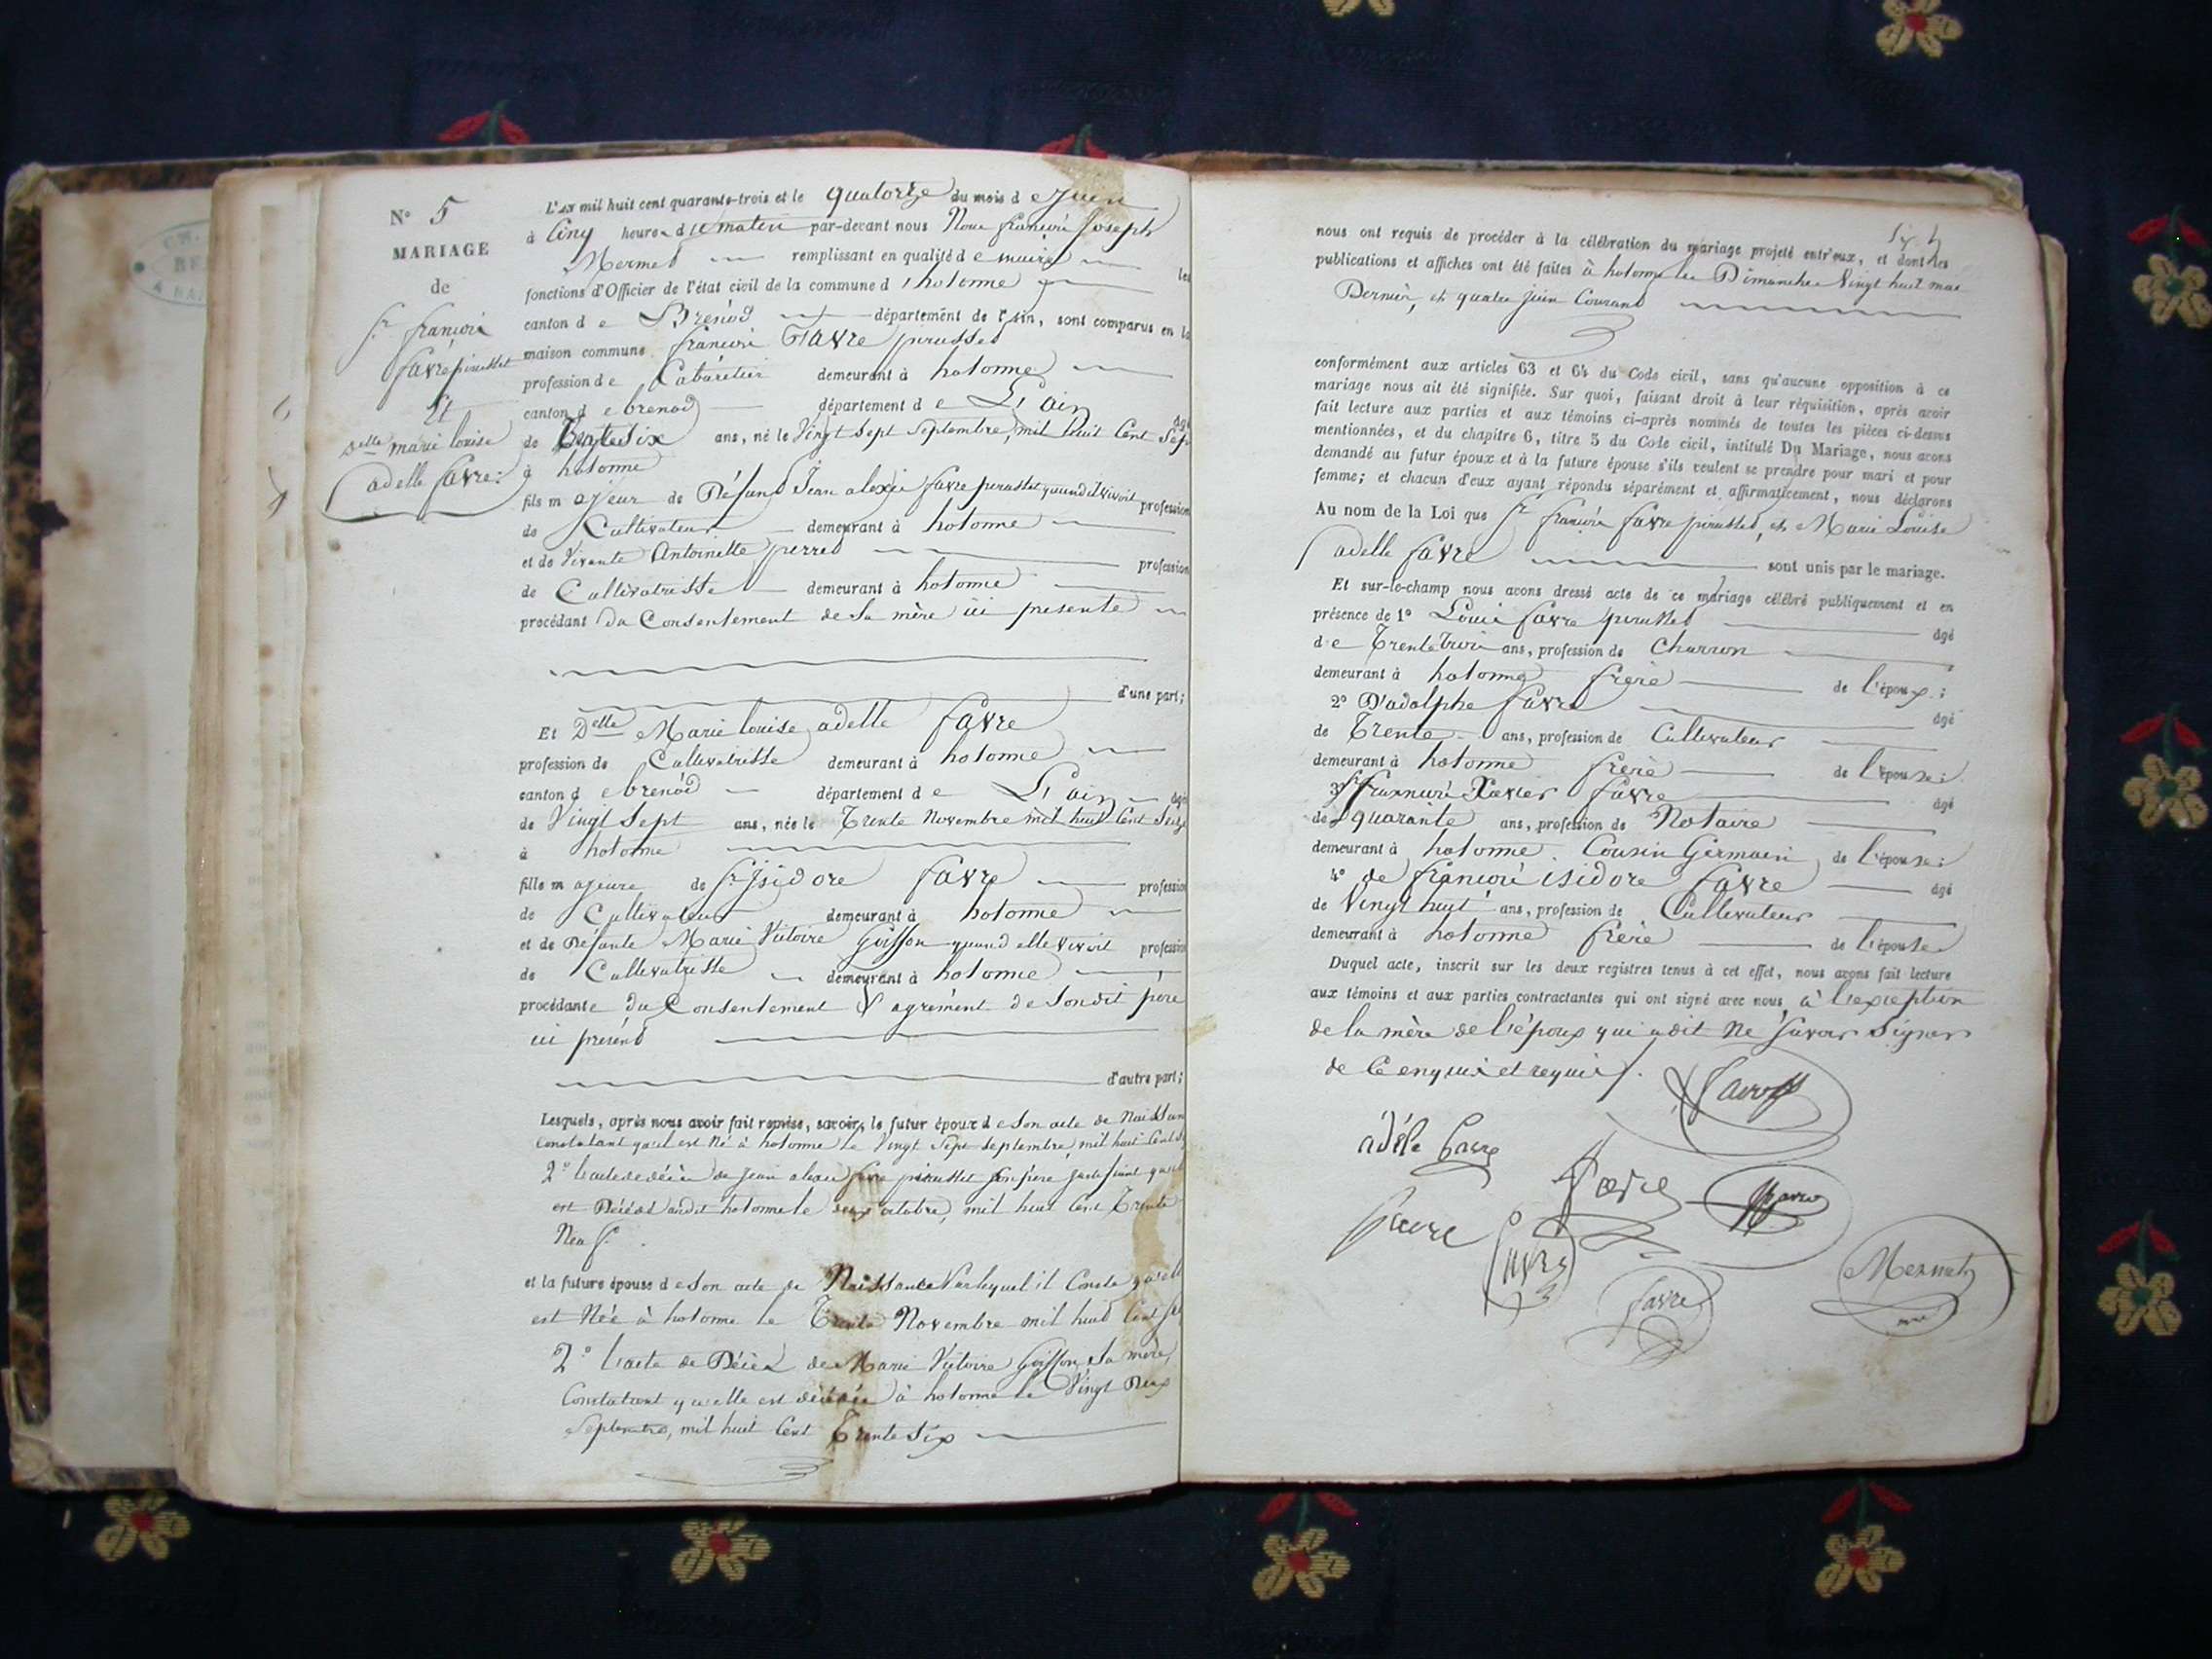 N° 5
MARIAGE
de
Sr françois
favre pirusset
Et
Delle marie louise
adelle favre
L'an mil huit cent quarante-trois et le quatorze du mois de Juin
à Cinq heures du matin par-devant nous Nous françois Joseph
Mermet remplissant en qualité de maire les
fonctions d'Officier de l'état civil de la commune d'hotonne
canton de Brénod département de l'Ain, sont comparus en la
maison commune françois Favre pirusset
profession de Cabaretier demeurant à hotonne
canton de brenod département de L'ain âgé
de Trente Six ans, né le Vingt Sept Septembre, mil huit Cent Sept
à hotonne
fils majeur de Défunt Jean alexis favre pirusset quand il vivoit profession
de Cultivateur demeurant à hotonne
et de Vivante Antoinette perret profession
de Cultivatrisse demeurant à hotonne
procédant du Consentement de Sa mère ici presente
d'une part;
Et Delle Marie louise adelle favre
profession de Cultivatrisse demeurant à hotonne
canton de brénod département de L'ain âgé
de Vingt Sept ans, née le Trente Novembre mil huit Cent Seize
à hotonne
fille majeure de Sr Isidore favre profession
de Cultivateur demeurant à hotonne
et de Défunte Marie Victoire Goiffon quand elle vivoit profession
de Cultivatrisse demeurant à hotonne
procédante du Consentement & agrément de Son dit père
ici présent
d'autre part;
Lesquels, après nous avoir fait remise, savoir, le futur époux de Son acte de Naissan
Constatant qu'il est Né à hotonne le Vingt Sept Septembre, mil huit Cent S
2° l'acte de décès de Jean alexis favre pirusset Son père justifiant qu'il
est Décédé audit hotonne le octobre, mil huit Cent Trente
Neuf.
et la future épouse de Son acte de Naissance Par lequel il Conste qu'elle
est Née à hotonne le Trente Novembre mil huit Cent
2° l'acte de Décès de Marie Victoire Goiffon Sa mère,
Constatant qu'elle est décédée à hotonne le Vingt Deux
Septembre, mil huit Cent Trente Six
nous ont requis de procéder à la célébration du mariage projeté entr'eux, et dont les
publications et affiches ont été faites à hotonne les Dimanches Vingt huit mai
Dernier, et quatre juin Courant
conformément aux articles 63 et 64 du Code civil, sans qu'aucune opposition à ce
mariage nous ait été signifiée. Sur quoi, faisant droit à leur réquisition, après avoir
fait lecture aux parties et aux témoins ci-après nommés de toutes les pièces ci-dessus
mentionnées, et du chapitre 6, titre 5 du Code civil, intitulé Du Mariage, nous avons
demandé au futur époux et à la future épouse s'ils veulent se prendre pour mari et pour
femme; et chacun d'eux ayant répondu séparément et affirmativement, nous déclarons
Au nom de la Loi que Sr françois favre pirusset, et Marie Louise
adelle favre sont unis par le mariage.
Et sur-le-champ nous avons dressé acte de ce mariage célébré publiquement et en
présence de 1° Louis favre pirusset âgé
de Trente trois ans, profession de Charron
demeurant à hotonne frère de l'époux;
2° D'adolphe favre âgé
de Trente ans, profession de Cultivateur
demeurant à hotonne frère de l'épouse;
3° françois Xavier favre âgé
de quarante ans, profession de Notaire
demeurant à hotonne. Cousin Germain de l'épouse;
4° de françois isidore favre âgé
de Vingt huit ans, profession de Cultivateur
demeurant à hotonne frère de l'épouse
Duquel acte, inscrit sur les deux registres tenus à cet effet, nous avons fait lecture
aux témoins et aux parties contractantes qui ont signé avec nous, à l'exception
de la mère de l'époux qui a dit Ne Savoir Signer
de Ce enquis et requis.
adéle favre
Favre
favre
favre
favre
Mermet